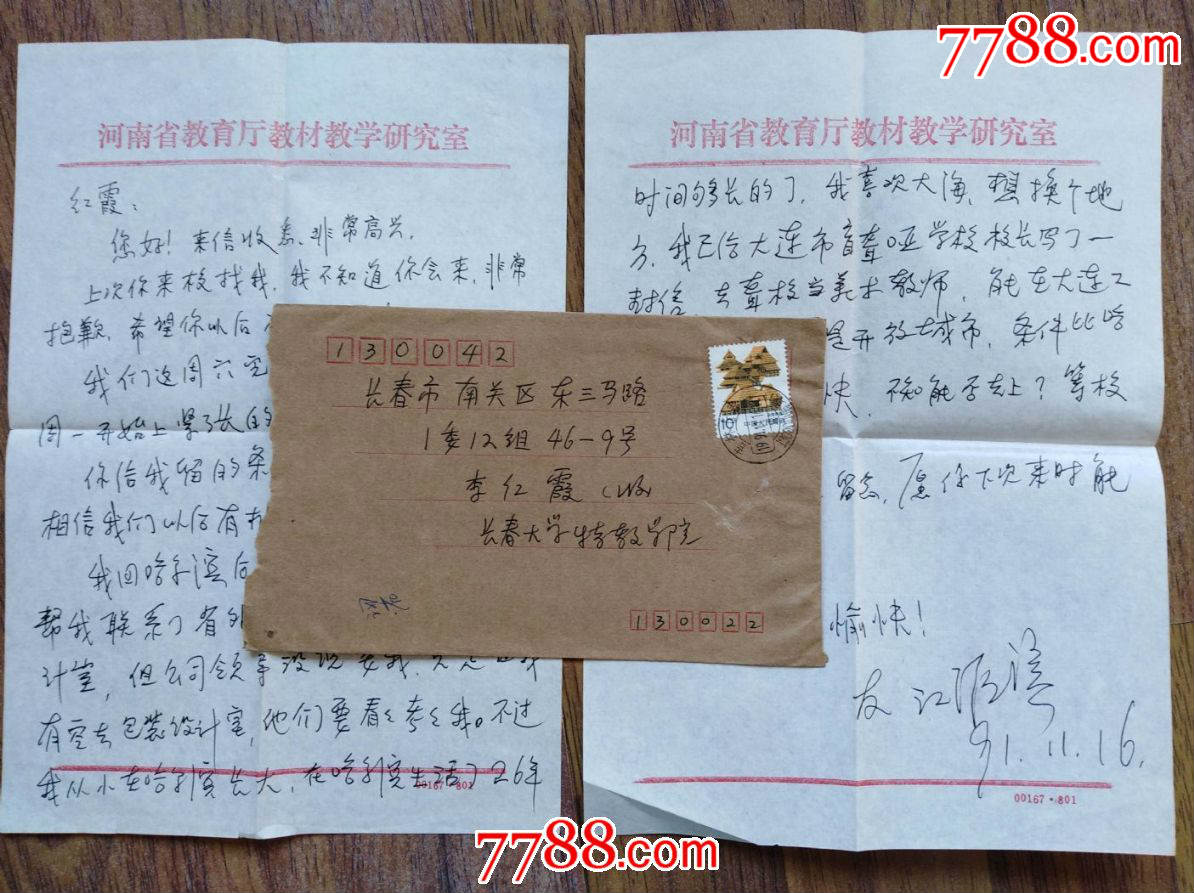 7788.com
河南省教育厅教材教学研究室
红霞：
您好！来信收悉，非常高兴。
上次你来校找我，我不知道你会来，非常
抱歉，希望你以后
我们这周六
周一开始上
你给我留的条
相信我们以后有
我回哈尔滨后
帮我联系了省外
计室，但公司领导没说要我，
有空去包装设计室，他们要看看考考我。不过
我从小在哈尔滨长大，在哈尔滨生活了26年
00167·801
河南省教育厅教材教学研究室
时间够长的了，我喜欢大海，想换个地
方，我已给大连市盲聋哑学校校长写了一
封信，去聋校当美术教师，能在大连工
是开放城市，条件比哈
快，不知能否去上？等校
留念，愿你下次来时能
愉快！
友 江
91.11.16.
00167·801
130042
长春市南关区东三马路
1委12组46-9号
李红霞（收）
长春大学特教学院
130022
10分
中国人民邮政
7788.com